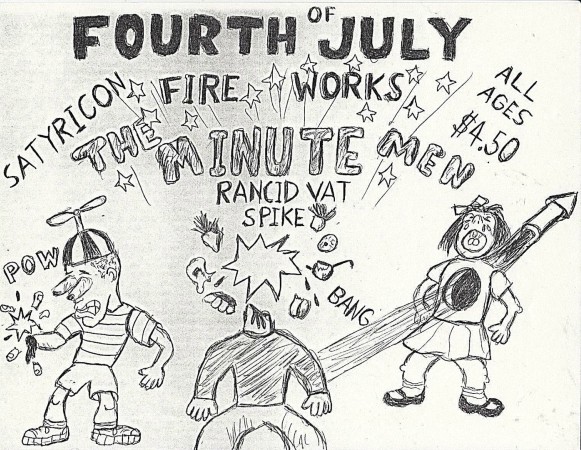 FOURTH OF JULY
FIRE WORKS
SATYRICON
ALL
AGES
$4.50
THE MINUTE MEN
RANCID VAT
SPIKE
POW
BANG